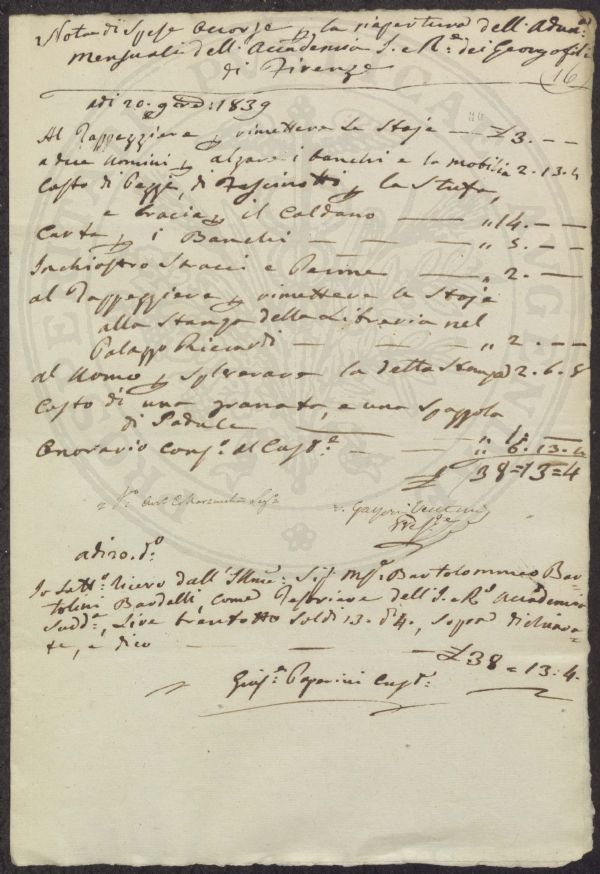 Nota di Spese Occorse p. la riapertura dell'Adun.
Mensuali dell'Accademia I. e R.e dei Georgofili
di Firenze
16
adì 20. 9bre: 1839
Al Tappezziere p. rimettere le Stoje — £3. — —
a due Uomini p. alzare i banchi e la mobilia 2. 13. 4
Costo di Pezzi, di Fascinotti p. la Stufa,
e bracia p. il Caldano — „ 14. — —
Carta p. i Banchi — — — „ 5. — —
Inchiostro Stracci e Penne — „ 2. —
al Tappezziere p. rimettere le Stoje
alla Stanza della Libreria nel
Palazzo Riccardi — — — „ 2. — —
al Uomo p. spolverare la detta Stanza 2. 6. 8
Costo di una granata, e una Spazzola
di Padule — „ 1.
Onorario Cons.o al Cust.e — — „ 6. 13. 4
£ 38=13=4
V.
v. Gazzeri
adì 20. d.o
Io Sott.o ricevo dall'Illmo: Sig. M. Bartolommeo Bar-
tolini Baldelli, come Tesoriere dell'I. e R. Accademia
Sudd.a, Lire trentotto Soldi 13. d 4., sopra dichiara-
te, e dico — — — £38=13:4.
Gius.e Papini Cust.e